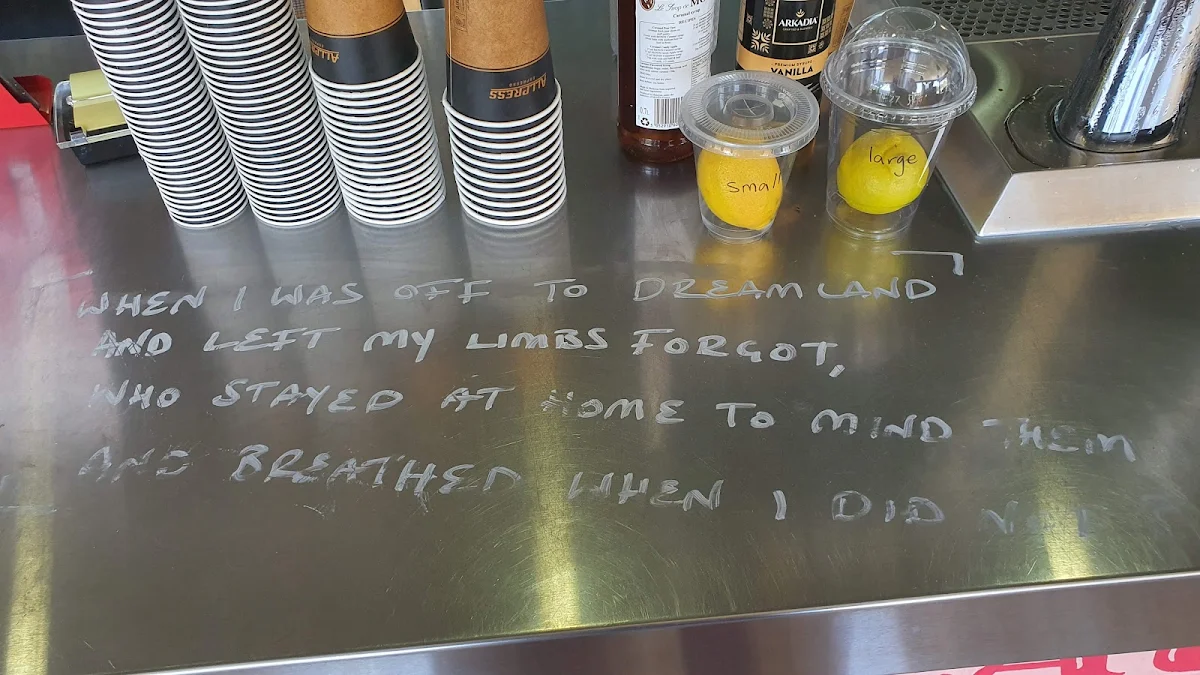 ALLPRESS
ESPRESSO
ALLPRESS
ESPRESSO
ARKADIA
PREMIUM SYRUP
VANILLA
small
large
WHEN I WAS OFF TO DREAMLAND
AND LEFT MY LIMBS FORGOT,
WHO STAYED AT HOME TO MIND THEM
AND BREATHED WHEN I DID NOT ?